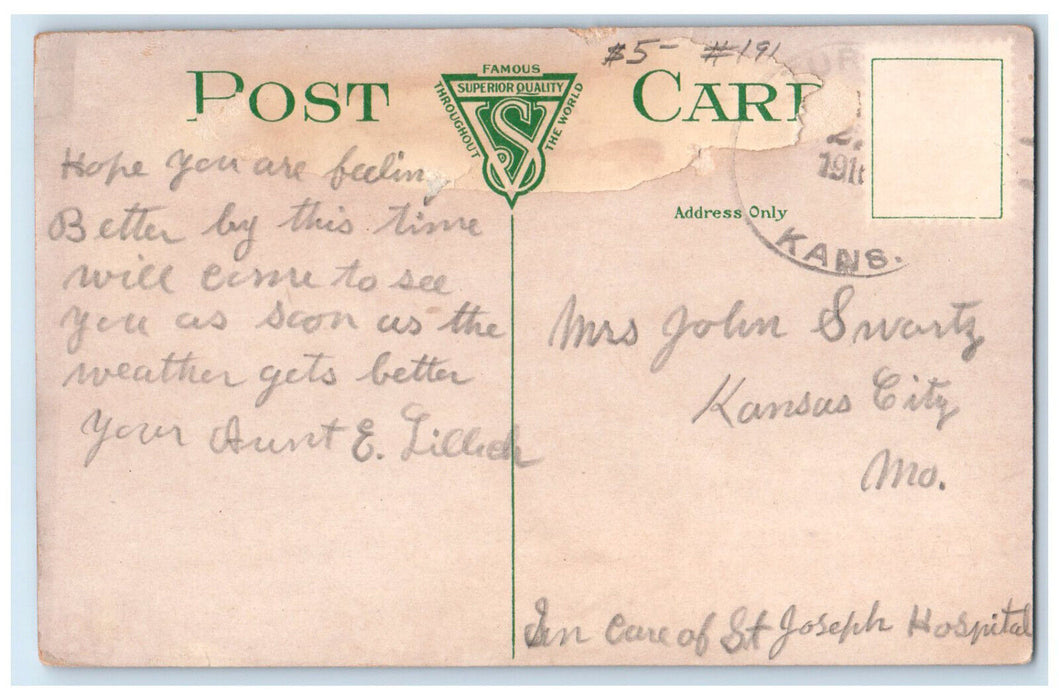 $5- #191
POST CARD
FAMOUS
SUPERIOR QUALITY
THROUGHOUT THE WORLD
VS
Hope you are feeling
Better by this time
will come to see
you as soon as the
weather gets better
Your Aunt E.
Address Only
KANS.
Mrs John Swartz
Kansas City
Mo.
In Care of St Joseph Hospital